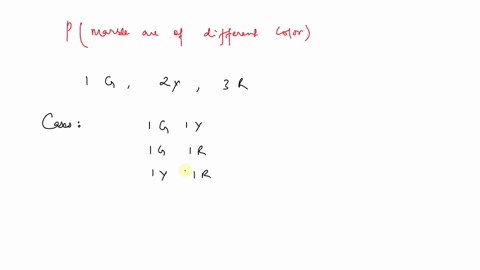 P ( marble are of different color )
1 G , 2Y , 3 R
Cases :
1 G 1 Y
1 G 1 R
1 Y 1 R